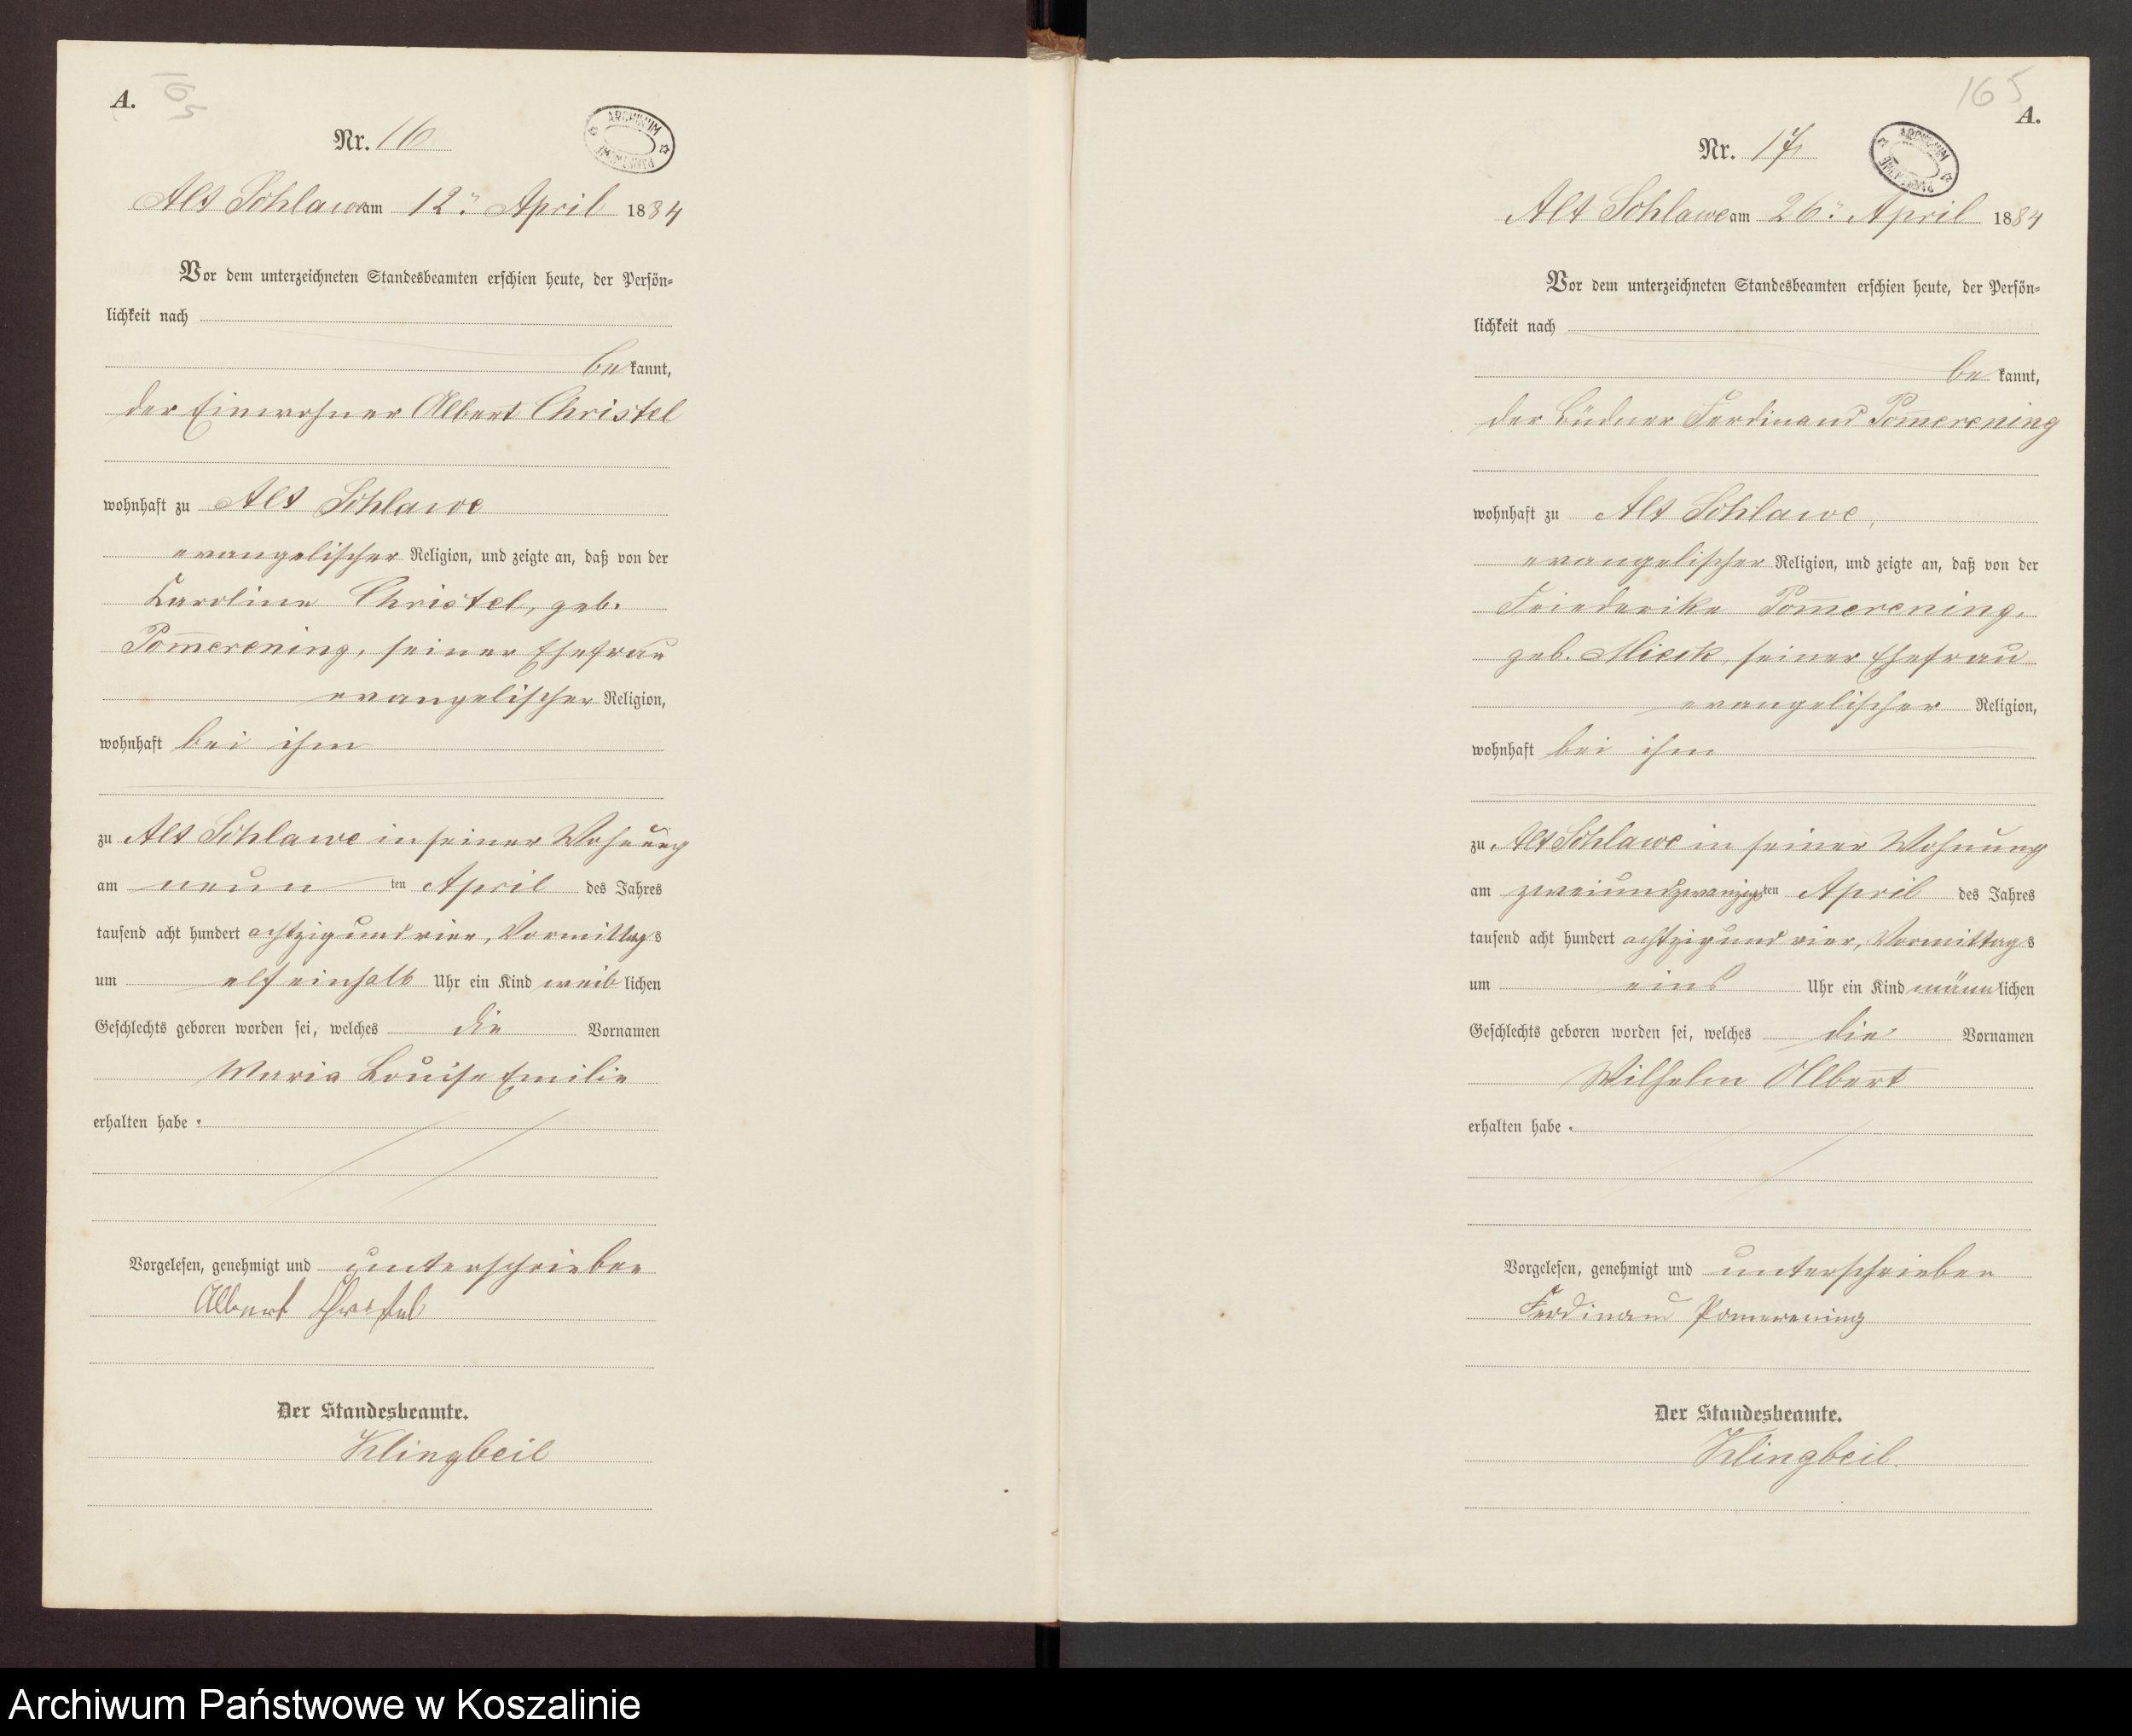 A.
165
Nr. 16
ARCHIWUM PAŃSTWOWE
Alt Schlawe am 12. April 1884
Vor dem unterzeichneten Standesbeamten erschien heute, der Persön-
lichkeit nach
be kannt,
der Einwohner Albert Christel
wohnhaft zu Alt Schlawe
evangelischer Religion, und zeigte an, daß von der
Karoline Christel, geb.
Pom̅erening, seiner Ehefrau
evangelischer Religion,
wohnhaft bei ihm
zu Alt Schlawe in seiner Wohnung
am neun ten April des Jahres
tausend acht hundert achtzig und vier, Vormittags
um elf einhalb Uhr ein Kind weib lichen
Geschlechts geboren worden sei, welches die Vornamen
Maria Louise Emilie
erhalten habe.
Vorgelesen, genehmigt und unterschrieben
Albert Christel
Der Standesbeamte.
Klingbeil
165
A.
Nr. 17
ARCHIWUM PAŃSTWOWE
Alt Schlawe am 26. April 1884
Vor dem unterzeichneten Standesbeamten erschien heute, der Persön-
lichkeit nach
be kannt,
der Büdner Ferdinand Pom̅erening
wohnhaft zu Alt Schlawe,
evangelischer Religion, und zeigte an, daß von der
Friederike Pom̅erening,
geb. Mieck, seiner Ehefrau
evangelischer Religion,
wohnhaft bei ihm
zu Alt Schlawe in seiner Wohnung
am zweiundzwanzigsten April des Jahres
tausend acht hundert achtzig und vier, Vormittags
um eins Uhr ein Kind männlichen
Geschlechts geboren worden sei, welches die Vornamen
Wilhelm Albert
erhalten habe.
Vorgelesen, genehmigt und unterschrieben
Ferdinand Pomerening
Der Standesbeamte.
Klingbeil.
Archiwum Państwowe w Koszalinie